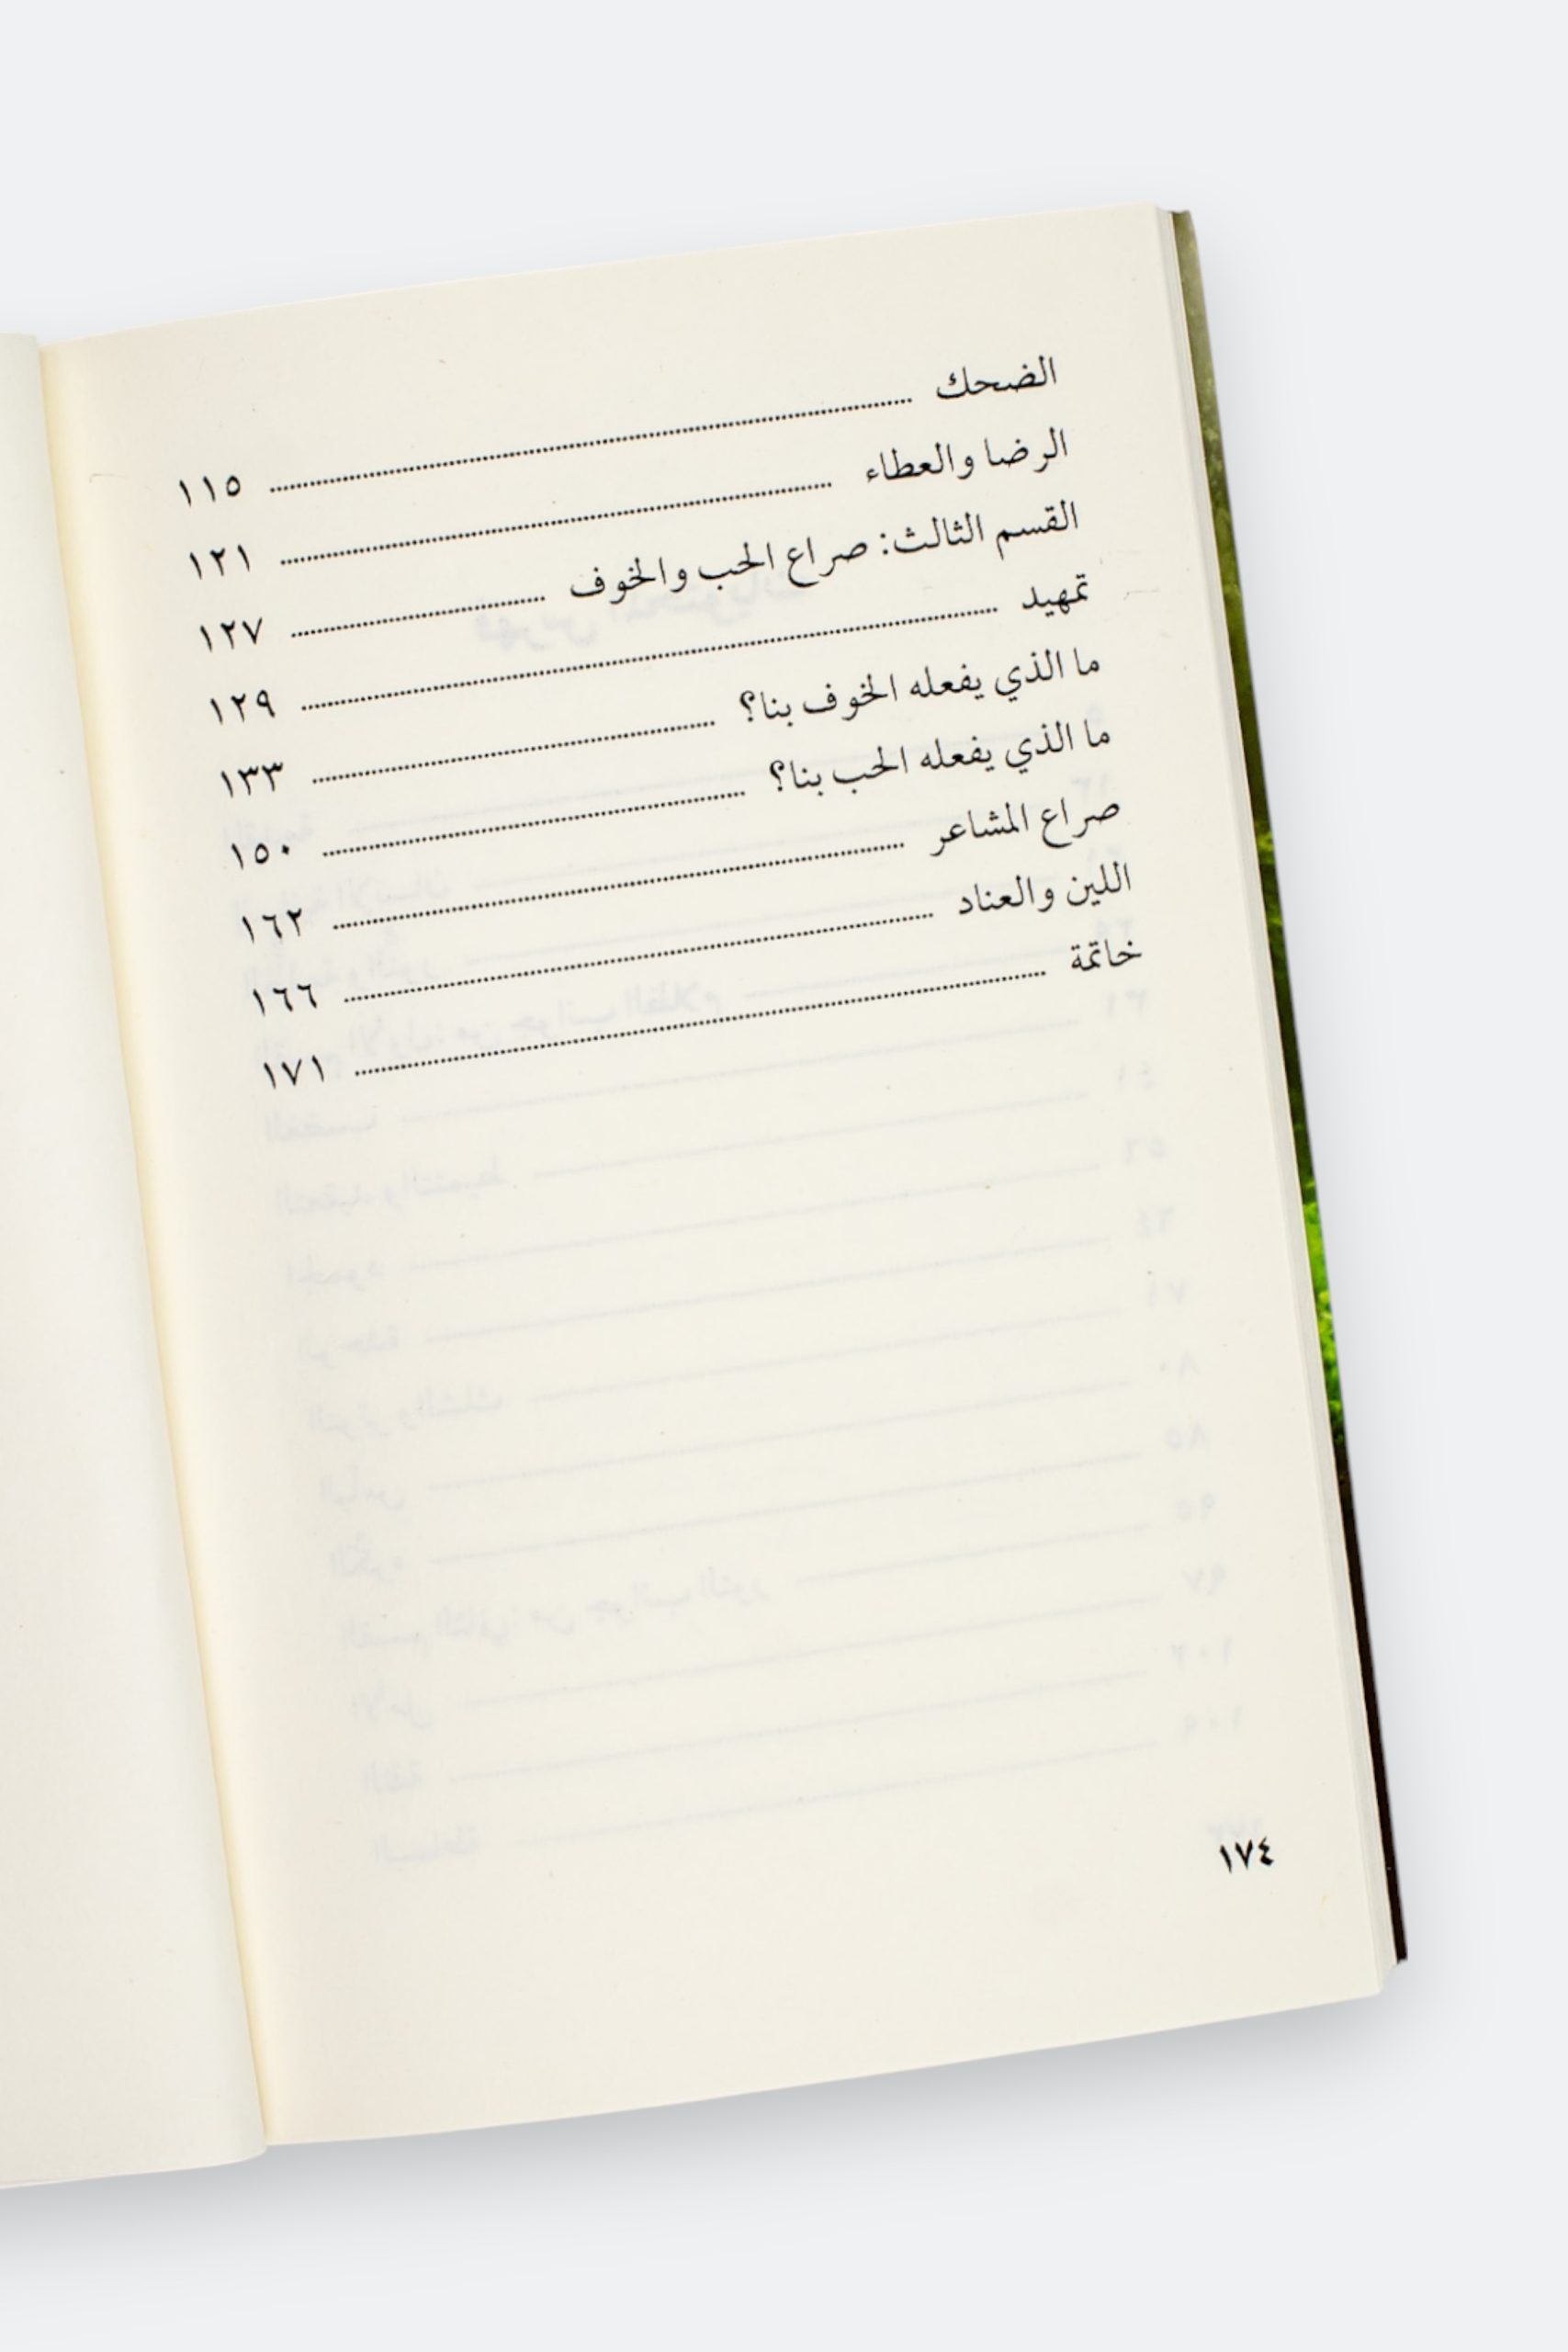 الضحك ........ ١١٥
الرضا والعطاء ........ ١٢١
القسم الثالث: صراع الحب والخوف ........ ١٢٧
تمهيد ........ ١٢٩
ما الذي يفعله الخوف بنا؟ ........ ١٣٣
ما الذي يفعله الحب بنا؟ ........ ١٥٠
صراع المشاعر ........ ١٦٢
اللين والعناد ........ ١٦٦
خاتمة ........ ١٧١
١٧٤